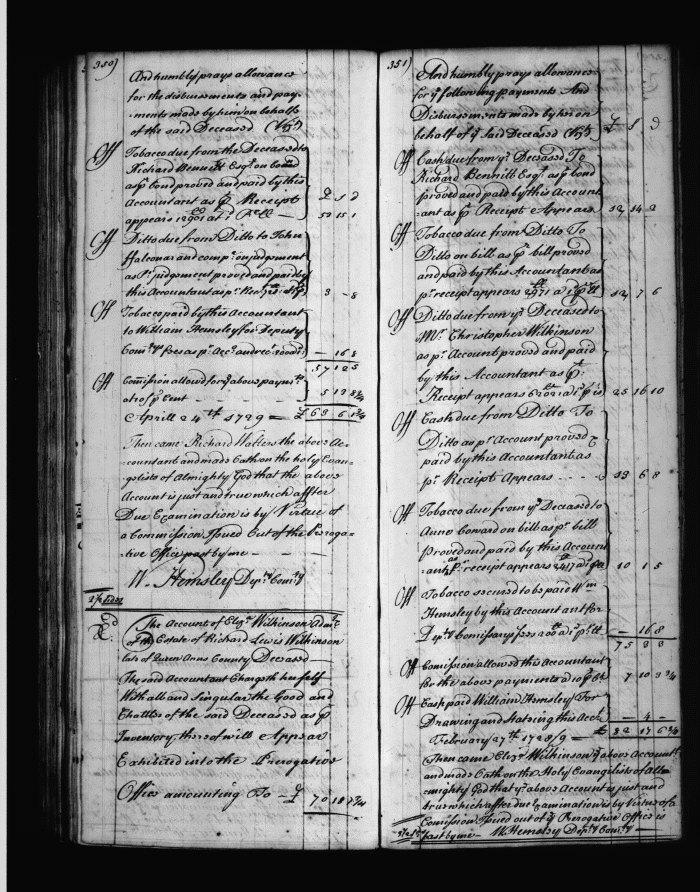 350)
And humbly prays allowance
for the disbursments and pay-
-ments made by him on behalf
of the said Deceased (Vizt)
Off Tobacco due from the Deceased to
Richard Bennett Esqr. on bond
as pr bond proved and paid by this
Accountant as pr Receipt £ s d
appears 50 15 1
Off Ditto due from Ditto to John
Falconar and comp: on judgement
as Pr. judgement proved and paid by
this Accountant as pr. 3 - 8
Off Tobacco paid by this Accountant
to William Hemsley for Deputy
Comrys fees as pr. Acct. and rect. - 16 8
57 12 5
Off Comission allowd for ye above paymts
at 10 pr Cent - - - 5 13 8¾
Aprill 24th 1729 = £ 63 6 1¾
Then came Richard Walters the above Ac-
-countant and made Oath on the holy Evan-
-gelists of Almighty God that the above
Account is just and true which affter
Due Examination is by Virtue of
a Commission Issued Out of the Peroga-
-tive Office past by me -
W. Hemsley Depty Comry
The Account of Elizr. Wilkinson Admx
of the Estate of Richard Lewis Wilkinson
late of Queen Anns County Deceased
The said Accountant Chargeth herself
With all and Singular the Good and
Chattles of the said Deceased as pr
Inventory thereof will Appear
Exhibited into the Prerogative
Office amounting To - £ 70
351)
And humbly prays allowance
for ye following payments And
Disbursements made by her on
behalf of ye said Deceased (Vizt) £ s d
Off Cash due from ye Deceased To
Richard Bennett Esqr. as pr bond
proved and paid by this Account
-ant as pr Receipt Appears 12 14 2
Off Tobacco due from Ditto To
Ditto on bill as pr bill proved
and paid by this Accountant as
pr receipt appears 2971 12 7 6
Off Ditto due from ye Deceased to
Mr. Christopher Wilkinson
as pr Account proved and paid
by this Accountant as pr
Receipt appears 6202 25 16 10
Off Cash due from Ditto To
Ditto as pr Account proved &
paid by this Accountant as
pr Receipt Appears - - - 13 6 8
Off Tobacco due from ye Deceased to
Anno Coward on bill as pr bill
proved and paid by this Account
-ant as pr receipt appears 2417 10 1 5
Off Tobacco secured to be paid Wm
Hemsley by this Accountant for
Depty Comissarys fees 200 - 16 8
75 3 3
Off Comission allowed the Accountant
for the above payments a 10 pr Ct 7 10 3¾
Off Cash paid William Hemsley For
Drawing and Stating this Acct - 4 -
February 27th 1728/9 = £ 82 17 6¾
Then came Elizr Wilkinson ye above Accountt
and made Oath on the Holy Evangelists of Allm-
-mighty God that ye above Account is just and
true which after due Examination is by Virtue of a
Comission Issued out of ye Prerogative Office is
past by me - W. Hemsley Depty Comry